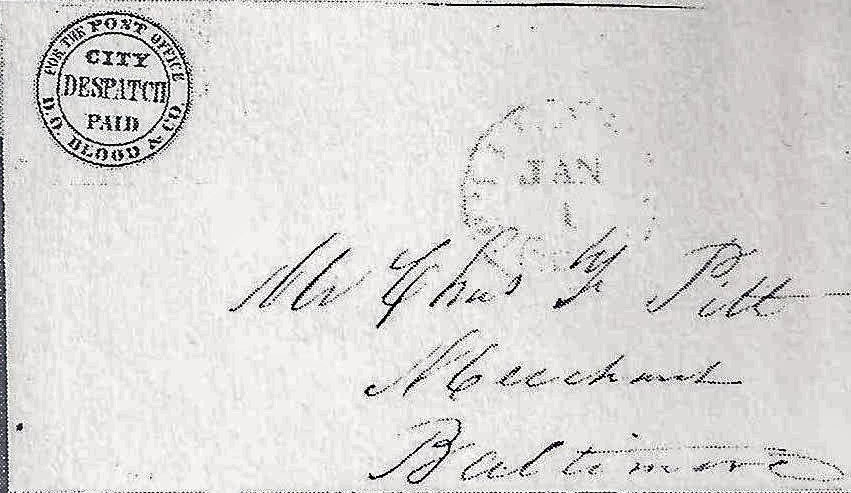 FOR THE POST OFFICE
CITY
DESPATCH
PAID
D.O. BLOOD & CO.
JAN
1
Mr Chas Pitt
Merchant
Baltimore